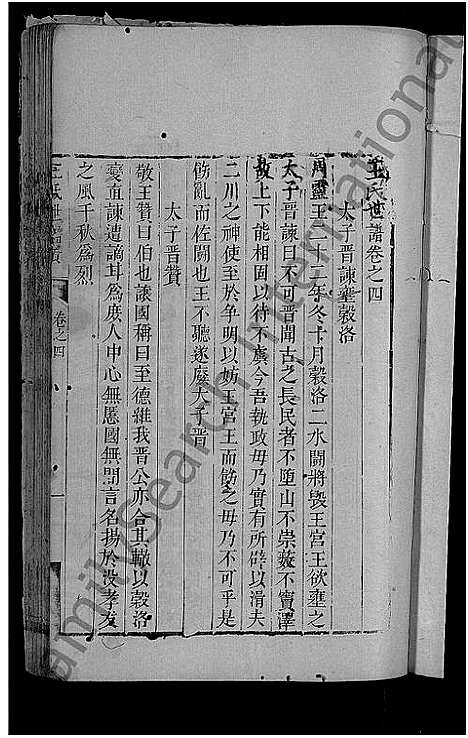 王氏世譜卷之四
太子晉諫壅穀洛
周靈王二十二年冬十月穀洛二水鬭將毀王宮王欲壅之
太子晉諫曰不可晉聞古之長民者不墮山不崇薮不竇澤
故上下能相固以待不虞今吾執政毋乃實有所辟以滑夫
二川之神使至於争明以妨王宮王而飭之毋乃不可乎是
飭亂而佐鬭也王不聽遂廢太子晉
太子晉贊
敬王贊曰伯也譲國稱曰至德維我晉公亦合其轍以穀洛
變直諫遣謫耳為庶人中心無慝國無間言名揚於没孝友
之風千秋為烈
王氏世譜
卷之四
FamilySearch International